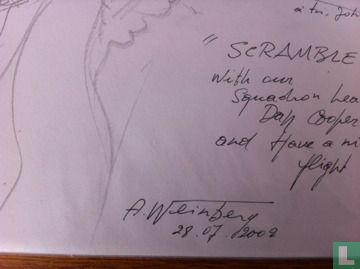 à Mr. Joh
" SCRAMBLE
With our
Squadron Lea
Dan Cooper
and Have a ni
flight
A. Weinberg
28.07.2002